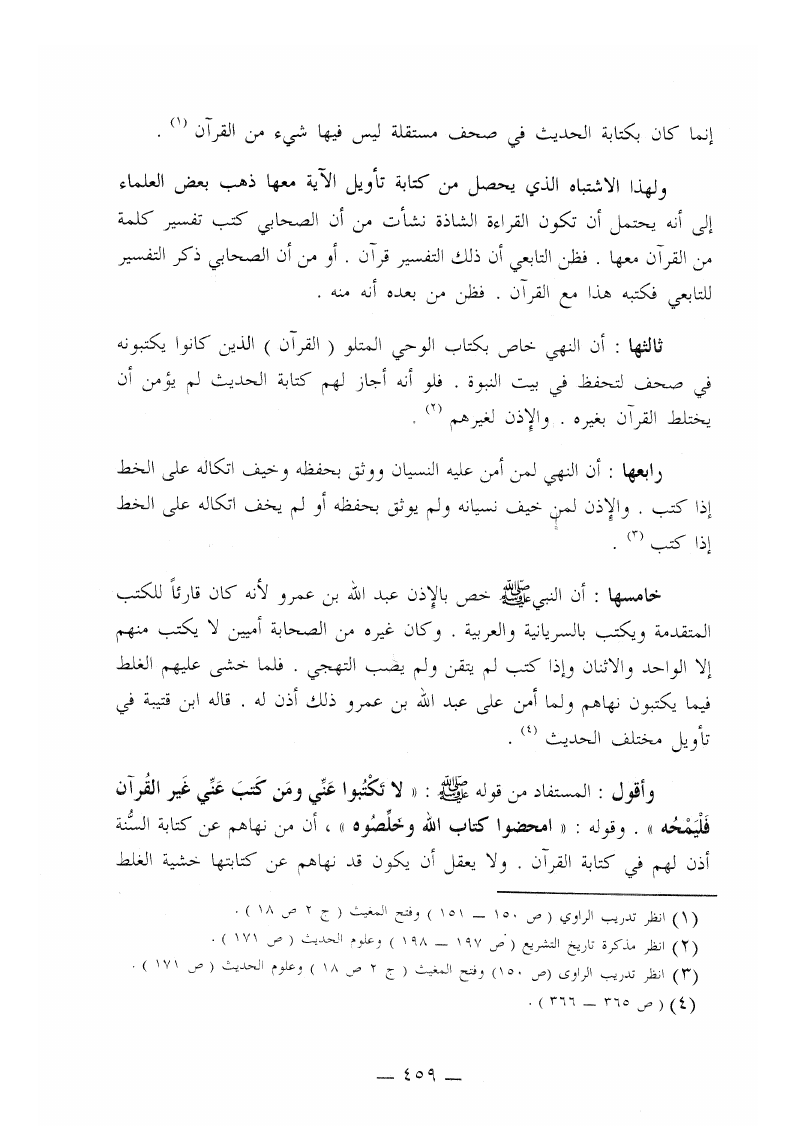 إنما كان بكتابة الحديث في صحف مستقلة ليس فيها شيء من القرآن (١) .
ولهذا الاشتباه الذي يحصل من كتابة تأويل الآية معها ذهب بعض العلماء
إلى أنه يحتمل أن تكون القراءة الشاذة نشأت من أن الصحابي كتب تفسير كلمة
من القرآن معها . فظن التابعي أن ذلك التفسير قرآن . أو من أن الصحابي ذكر التفسير
للتابعي فكتبه هذا مع القرآن . فظن من بعده أنه منه .
ثالثها : أن النهي خاص بكتاب الوحي المتلو ( القرآن ) الذين كانوا يكتبونه
في صحف لتحفظ في بيت النبوة . فلو أنه أجاز لهم كتابة الحديث لم يؤمن أن
يختلط القرآن بغيره . والإذن لغيرهم (٢) .
رابعها : أن النهي لمن أمن عليه النسيان ووثق بحفظه وخيف اتكاله على الخط
إذا كتب . والإذن لمن خيف نسيانه ولم يوثق بحفظه أو لم يخف اتكاله على الخط
إذا كتب (٣) .
خامسها : أن النبي ﷺ خص بالإذن عبد الله بن عمرو لأنه كان قارئاً للكتب
المتقدمة ويكتب بالسريانية والعربية . وكان غيره من الصحابة أميين لا يكتب منهم
إلا الواحد والاثنان وإذا كتب لم يتقن ولم يصب التهجي . فلما خشى عليهم الغلط
فيما يكتبون نهاهم ولما أمن على عبد الله بن عمرو ذلك أذن له . قاله ابن قتيبة في
تأويل مختلف الحديث (٤) .
وأقول : المستفاد من قوله ﷺ : « لا تَكْتُبوا عَنِّي ومَن كَتبَ عَنِّي غَير القُرآن
فَلْيَمْحُه » . وقوله : « امحضوا كتاب الله وخَلِّصُوه » ، أن من نهاهم عن كتابة السُّنة
أذن لهم في كتابة القرآن . ولا يعقل أن يكون قد نهاهم عن كتابتها خشية الغلط
(١) انظر تدريب الراوي ( ص ١٥٠ — ١٥١ ) وفتح المغيث ( ج ٢ ص ١٨ ) .
(٢) انظر مذكرة تاريخ التشريع ( ص ١٩٧ — ١٩٨ ) وعلوم الحديث ( ص ١٧١ ) .
(٣) انظر تدريب الراوى (ص ١٥٠) وفتح المغيث ( ج ٢ ص ١٨ ) وعلوم الحديث ( ص ١٧١ ) .
(٤) ( ص ٣٦٥ — ٣٦٦ ) .
— ٤٥٩ —